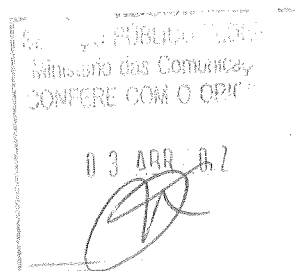 PÚBLICO
Ministério das Comunicaç
CONFERE COM O ORIG
03 ABR 02